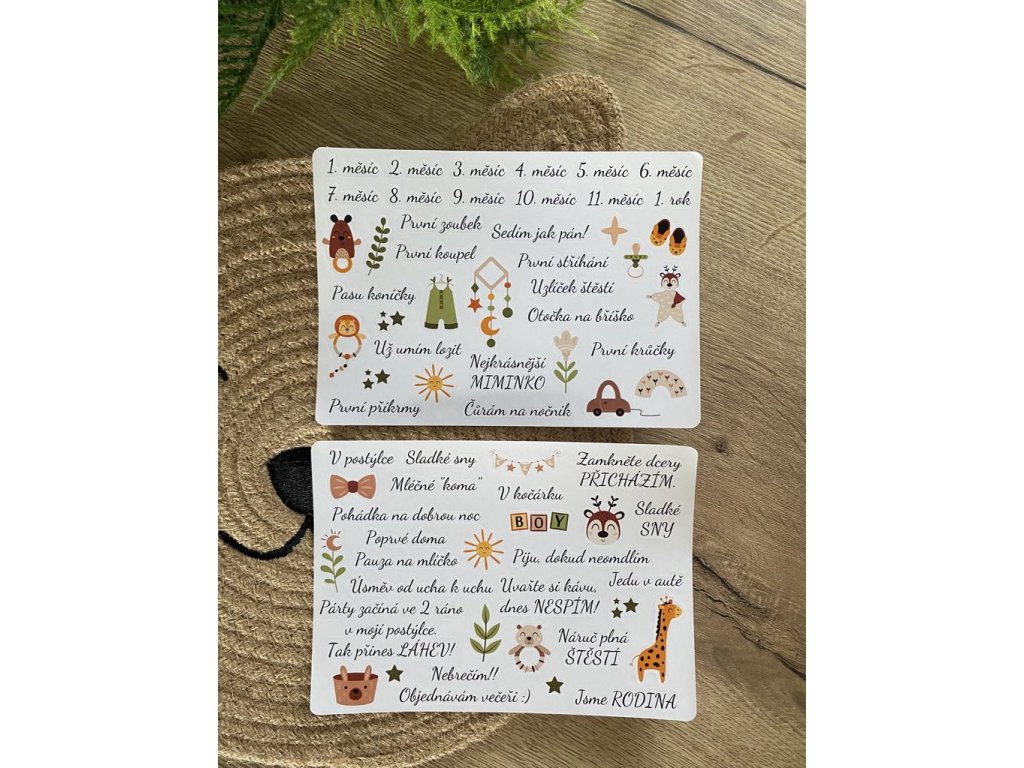 1. měsíc 2. měsíc 3. měsíc 4. měsíc 5. měsíc 6. měsíc
7. měsíc 8. měsíc 9. měsíc 10. měsíc 11. měsíc 1. rok
První zoubek
Sedím jak pán!
První koupel
První stříhání
Pasu koníčky
Uzlíček štěstí
Otočka na bříško
Už umím lozit
Nejkrásnější
MIMINKO
První krůčky
První příkrmy
Čůrám na nočník
V postýlce
Sladké sny
Zamkněte dcery
PŘICHÁZÍM.
Mléčné "koma"
V kočárku
Pohádka na dobrou noc
BOY
Sladké
SNY
Poprvé doma
Pauza na mlíčko
Piju, dokud neomdlím
Úsměv od ucha k uchu
Uvařte si kávu,
dnes NESPÍM!
Jedu v autě
Párty začíná ve 2 ráno
v mojí postýlce.
Tak přines LÁHEV!
Náruč plná
ŠTĚSTÍ
Nebrečím!!
Objednávám večeři :)
Jsme RODINA